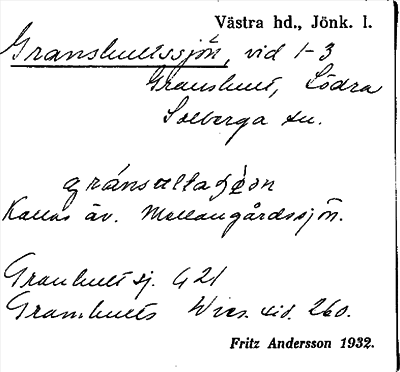 Västra hd., Jönk. l.
Granshultssjön, vid 1-3
Granshult, Södra
Solberga sn.
gránsɷltaʃøn
Kallas äv. Mellangårdssjön.
Granhult sj. G 21
Granshults Wies. sid. 260.
Fritz Andersson 1932.